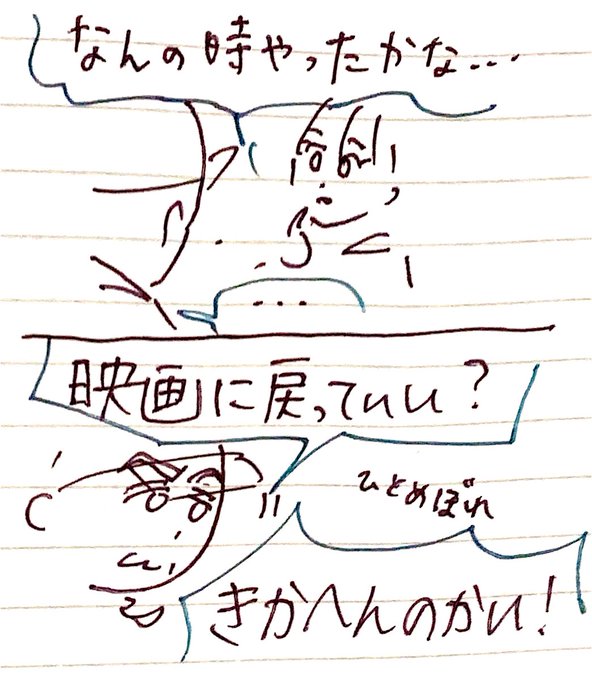 なんの時やったかな…
…
映画に戻っていい？
ひとめぼれ
きかへんのかい！